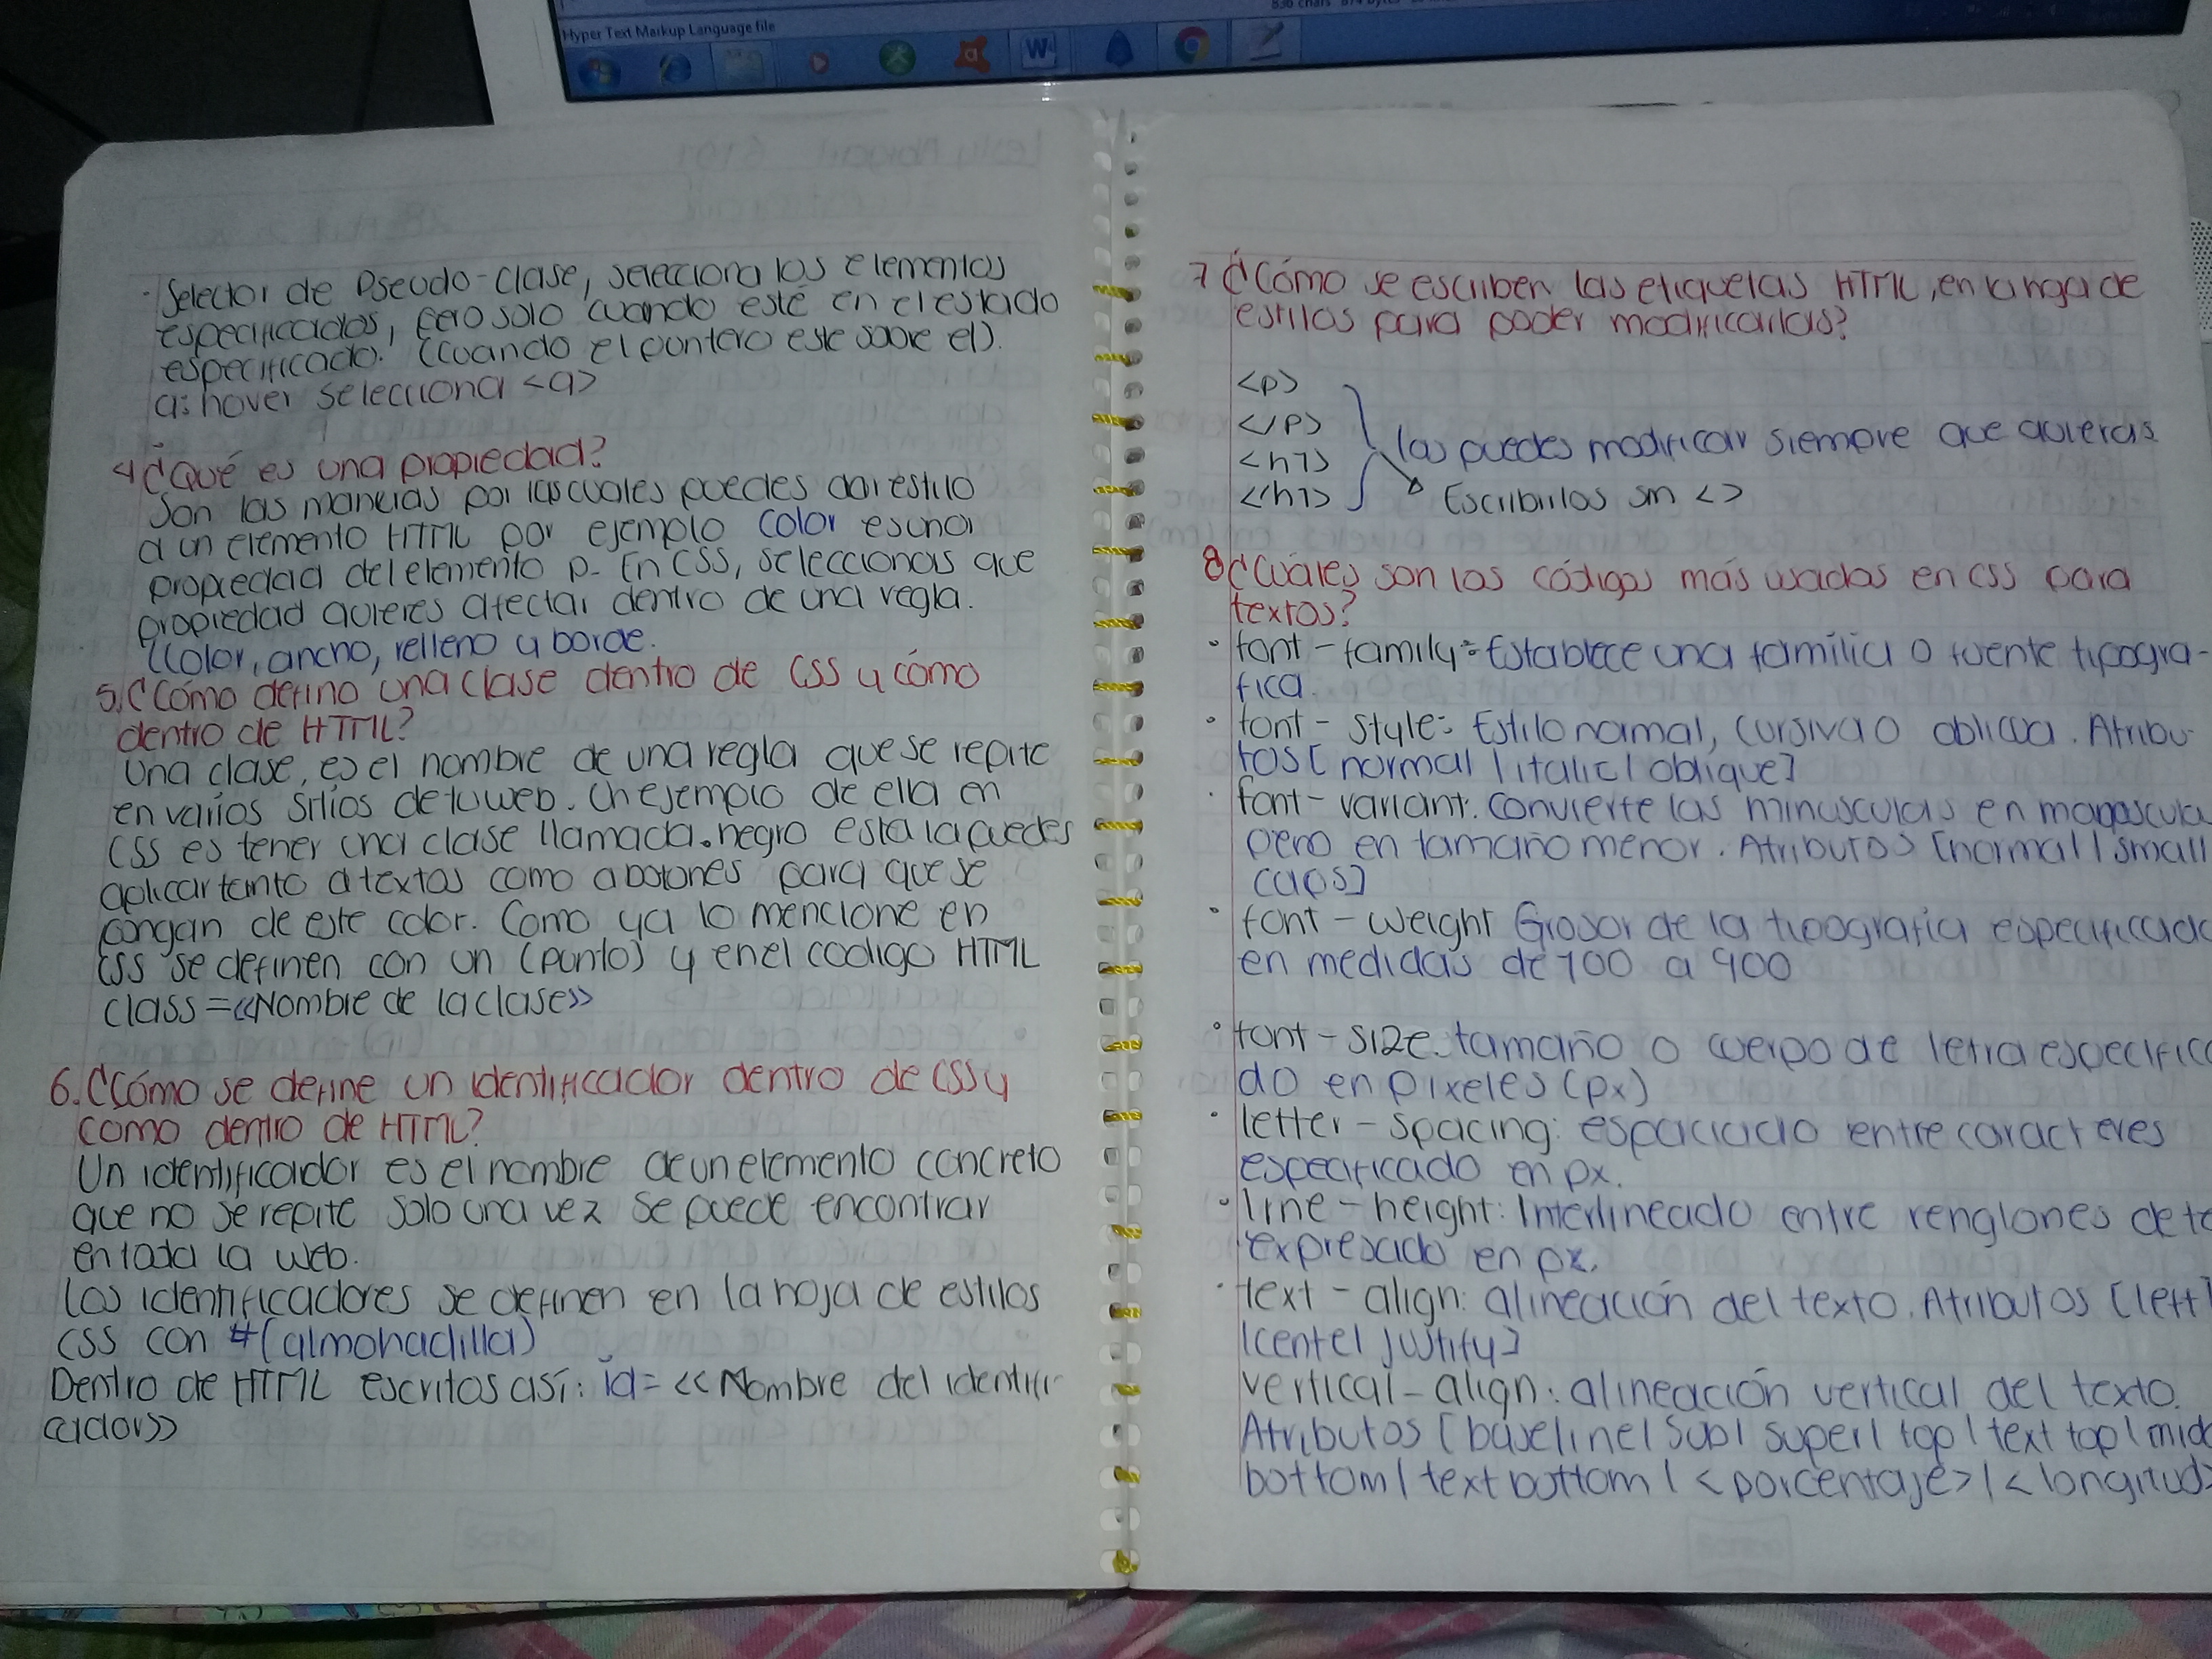 Hyper Text Markup Language file
· Selector de Pseudo-clase, selecciona los elementos
especificados, pero solo cuando esté en el estado
especificado. (Cuando el puntero este sobre el).
a:hover selecciona <a>
4 ¿Qué es una propiedad?
Son las maneras por las cuales puedes dar estilo
a un elemento HTML por ejemplo color es una
propiedad del elemento p. En CSS, seleccionas que
propiedad quieres afectar dentro de una regla.
(Color, ancho, relleno y borde.
5. ¿Cómo defino una clase dentro de CSS y cómo
dentro de HTML?
Una clase, es el nombre de una regla que se repite
en varios sitios de tu web. Un ejemplo de ella en
CSS es tener una clase llamada .negro esta la puedes
aplicar tanto a textos como a botones para que se
pongan de este color. Como ya lo mencione en
CSS se definen con un (punto) y en el codigo HTML
class=<<Nombre de la clase>>
6. ¿Cómo se define un identificador dentro de CSS y
como dentro de HTML?
Un identificador es el nombre de un elemento concreto
que no se repite solo una vez se puede encontrar
en toda la web.
Los identificadores se definen en la hoja de estilos
CSS con #(almohadilla)
Dentro de HTML escritos así: id= <<Nombre del identifi-
cador>>
7 ¿Cómo se escriben las etiquetas HTML, en la hoja de
estilos para poder modificarlas?
<p>
</p>
<h1>
</h1>
las puedes modificar siempre que quieras
Escribirlos sin <>
8 ¿Cuáles son los códigos más usados en CSS para
textos?
· font-family: Establece una família o fuente tipogra-
fica.
· font-style: Estilo normal, cursiva o oblicua. Atribu-
tos [normal | italic | oblique]
· font-variant: convierte las minusculas en mayuscula
pero en tamaño menor. Atributos [normal | small
caps]
· font-weight Grosor de la tipografía especificado
en medidas de 100 a 900
· font-size: tamaño o cuerpo de letra especifica
do en pixeles (px)
· letter-spacing: espaciado entre caracteres
especificado en px.
· line-height: Interlineado entre renglones de te
expresado en px.
· text-align: alineación del texto. Atributos [left|
|center| justify]
vertical-align: alineación vertical del texto.
Atributos [baseline| sub| super| top| text top| mid
bottom| text bottom | <porcentaje> | <longitud>